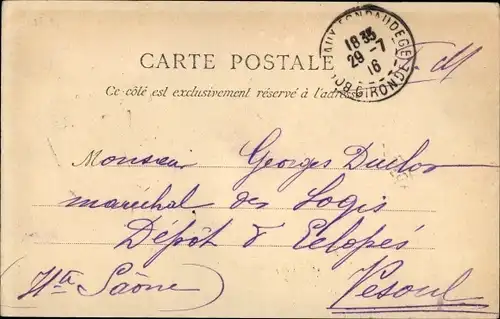 BORDEAUX FONDAUDEGE
18 35
29-7
16
GIRONDE
CARTE POSTALE
F. M
Ce côté est exclusivement réservé à l'adresse
Monsieur Georges Duclos
maréchal des Logis
Dépôt d' Eclopés
(Hte Saône) Vesoul